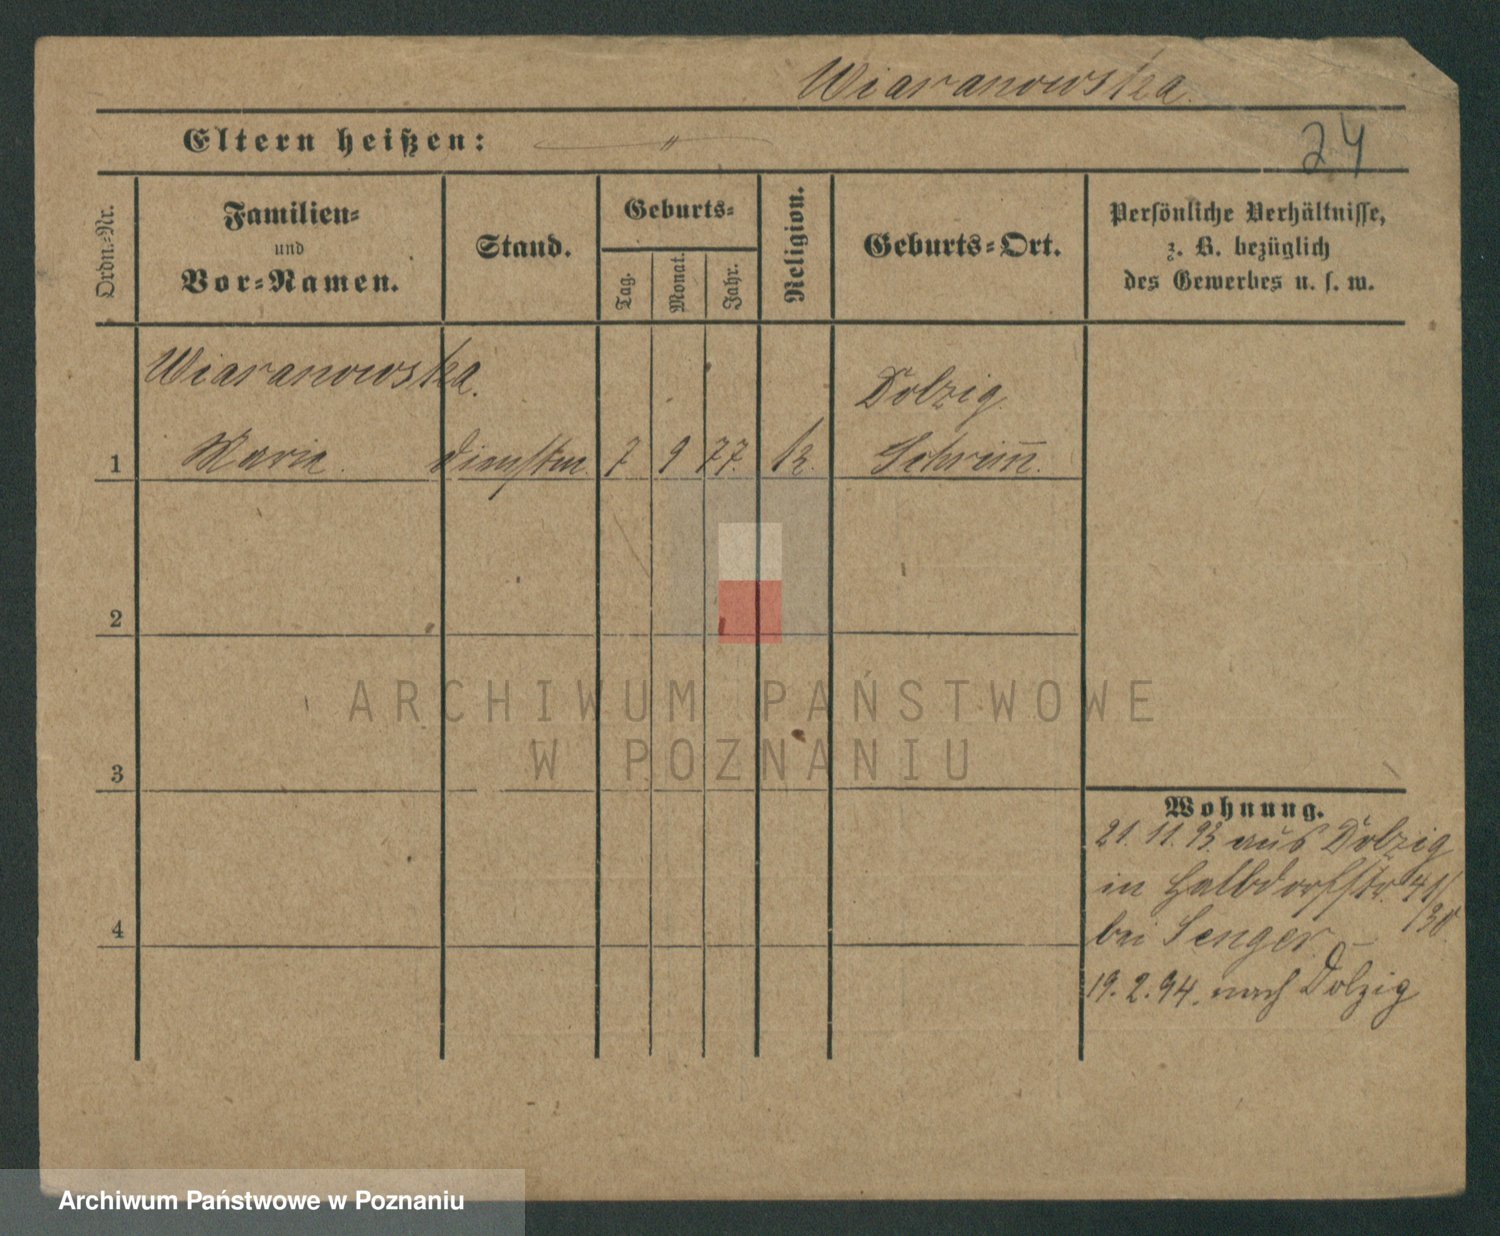 Wiaranowska.
Eltern heißen: "
24
Ordn.-Nr.
Familien-
und
Vor-Namen.
Stand.
Geburts-
Tag.
Monat.
Jahr.
Religion.
Geburts-Ort.
Persönliche Verhältnisse,
z. B. bezüglich
des Gewerbes u. s. w.
Wiaranowska.
Dolzig
1 Marie. 7 9 77. k. Schrim̄.
2
3
4
Wohnung.
21. 11. 93 aus Dolzig
in Halbdorfstr. 41/
/30
bei Senger. –
19. 2. 94. nach Dolzig
ARCHIWUM PAŃSTWOWE
W POZNANIU
Archiwum Państwowe w Poznaniu